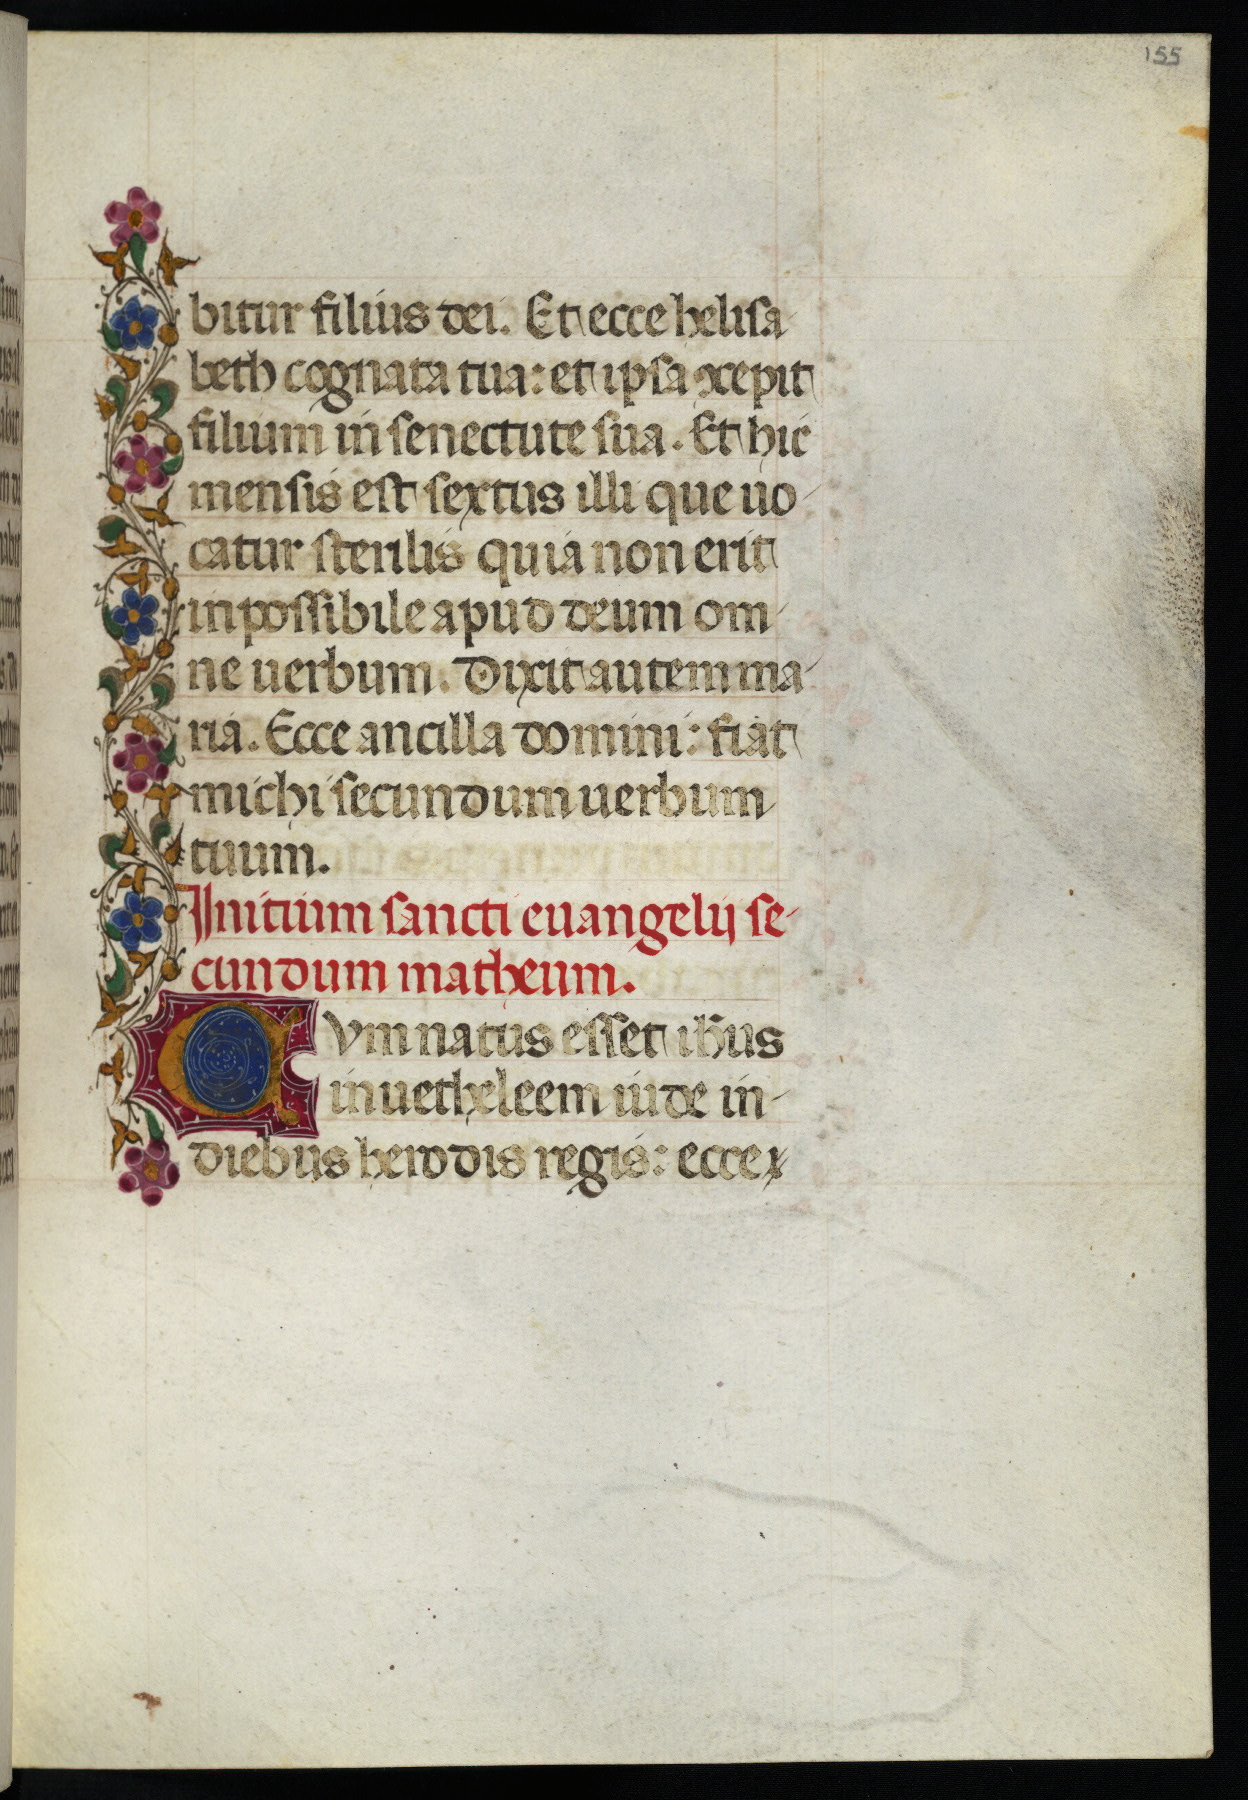 155
bitur filius dei. Et ecce helisa
beth cognata tua: et ipsa ɔcepit
filium in senectute sua. Et hic
mensis est sextus illi que uo-
catur sterilis quia non erit
inpossibile apud deum om-
ne uerbum. Dixit autem ma-
ria. Ecce ancilla domini: fiat
michi secundum uerbum
tuum.
Initium sancti euangelij se-
cundum matheum.
CVm natus esset ihus
in uetheleem iude in-
diebus herodis regis: ecce x